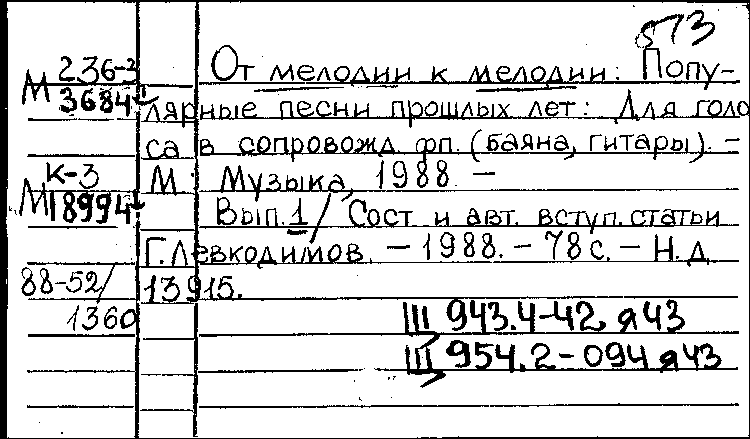 573
М 236-3
3684
От мелодии к мелодии: Попу-
лярные песни прошлых лет: Для голо
са в сопровожд. фп. (баяна, гитары). –
К-3
М18994
М: Музыка, 1988. –
Вып.1/ Сост. и авт. вступ. статьи
Г.Левкодимов. – 1988. – 78 с. – Н.д.
88-52/
1360
13915.
III 943.4-42 я43
III 954.2-094 я43